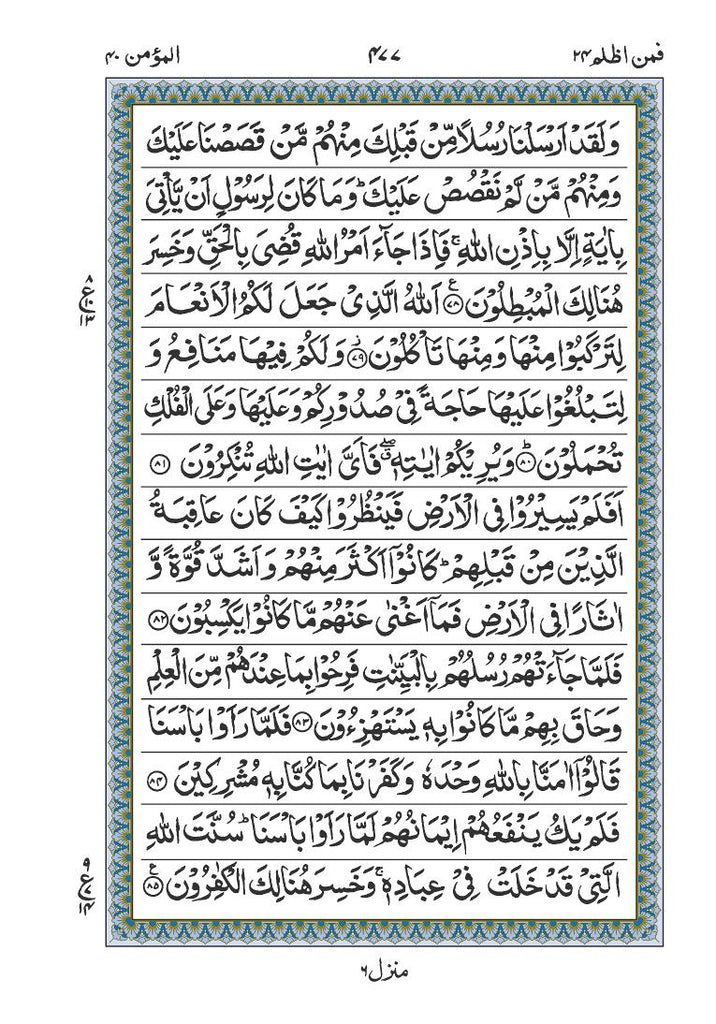 فمن اظلم ۲۴ ۴۷۷ المؤمن ۴۰
وَلَقَدْ اَرْسَلْنَا رُسُلًا مِّنْ قَبْلِكَ مِنْهُمْ مَّنْ قَصَصْنَا عَلَيْكَ
وَمِنْهُمْ مَّنْ لَّمْ نَقْصُصْ عَلَيْكَ ؕ وَمَا كَانَ لِرَسُوْلٍ اَنْ يَّاْتِيَ
بِاٰيَةٍ اِلَّا بِاِذْنِ اللّٰهِ ۚ فَاِذَا جَآءَ اَمْرُ اللّٰهِ قُضِيَ بِالْحَقِّ وَخَسِرَ
هُنَالِكَ الْمُبْطِلُوْنَ ۧ﴿۷۸﴾ اَللّٰهُ الَّذِيْ جَعَلَ لَكُمُ الْاَنْعَامَ
لِتَرْكَبُوْا مِنْهَا وَمِنْهَا تَاْكُلُوْنَ ﴿۷۹﴾ وَلَكُمْ فِيْهَا مَنَافِعُ وَ
لِتَبْلُغُوْا عَلَيْهَا حَاجَةً فِيْ صُدُوْرِكُمْ وَعَلَيْهَا وَعَلَى الْفُلْكِ
تُحْمَلُوْنَ ؕ﴿۸۰﴾ وَيُرِيْكُمْ اٰيٰتِهٖ ۖ فَاَيَّ اٰيٰتِ اللّٰهِ تُنْكِرُوْنَ ﴿۸۱﴾
اَفَلَمْ يَسِيْرُوْا فِي الْاَرْضِ فَيَنْظُرُوْا كَيْفَ كَانَ عَاقِبَةُ
الَّذِيْنَ مِنْ قَبْلِهِمْ ؕ كَانُوْۤا اَكْثَرَ مِنْهُمْ وَاَشَدَّ قُوَّةً وَّ
اٰثَارًا فِي الْاَرْضِ فَمَاۤ اَغْنٰى عَنْهُمْ مَّا كَانُوْا يَكْسِبُوْنَ ﴿۸۲﴾
فَلَمَّا جَآءَتْهُمْ رُسُلُهُمْ بِالْبَيِّنٰتِ فَرِحُوْا بِمَا عِنْدَهُمْ مِّنَ الْعِلْمِ
وَحَاقَ بِهِمْ مَّا كَانُوْا بِهٖ يَسْتَهْزِءُوْنَ ﴿۸۳﴾ فَلَمَّا رَاَوْا بَاْسَنَا
قَالُوْۤا اٰمَنَّا بِاللّٰهِ وَحْدَهٗ وَكَفَرْنَا بِمَا كُنَّا بِهٖ مُشْرِكِيْنَ ﴿۸۴﴾
فَلَمْ يَكُ يَنْفَعُهُمْ اِيْمَانُهُمْ لَمَّا رَاَوْا بَاْسَنَا ؕ سُنَّتَ اللّٰهِ
الَّتِيْ قَدْ خَلَتْ فِيْ عِبَادِهٖ ۚ وَخَسِرَ هُنَالِكَ الْكٰفِرُوْنَ ۧ﴿۸۵﴾
منزل ۶